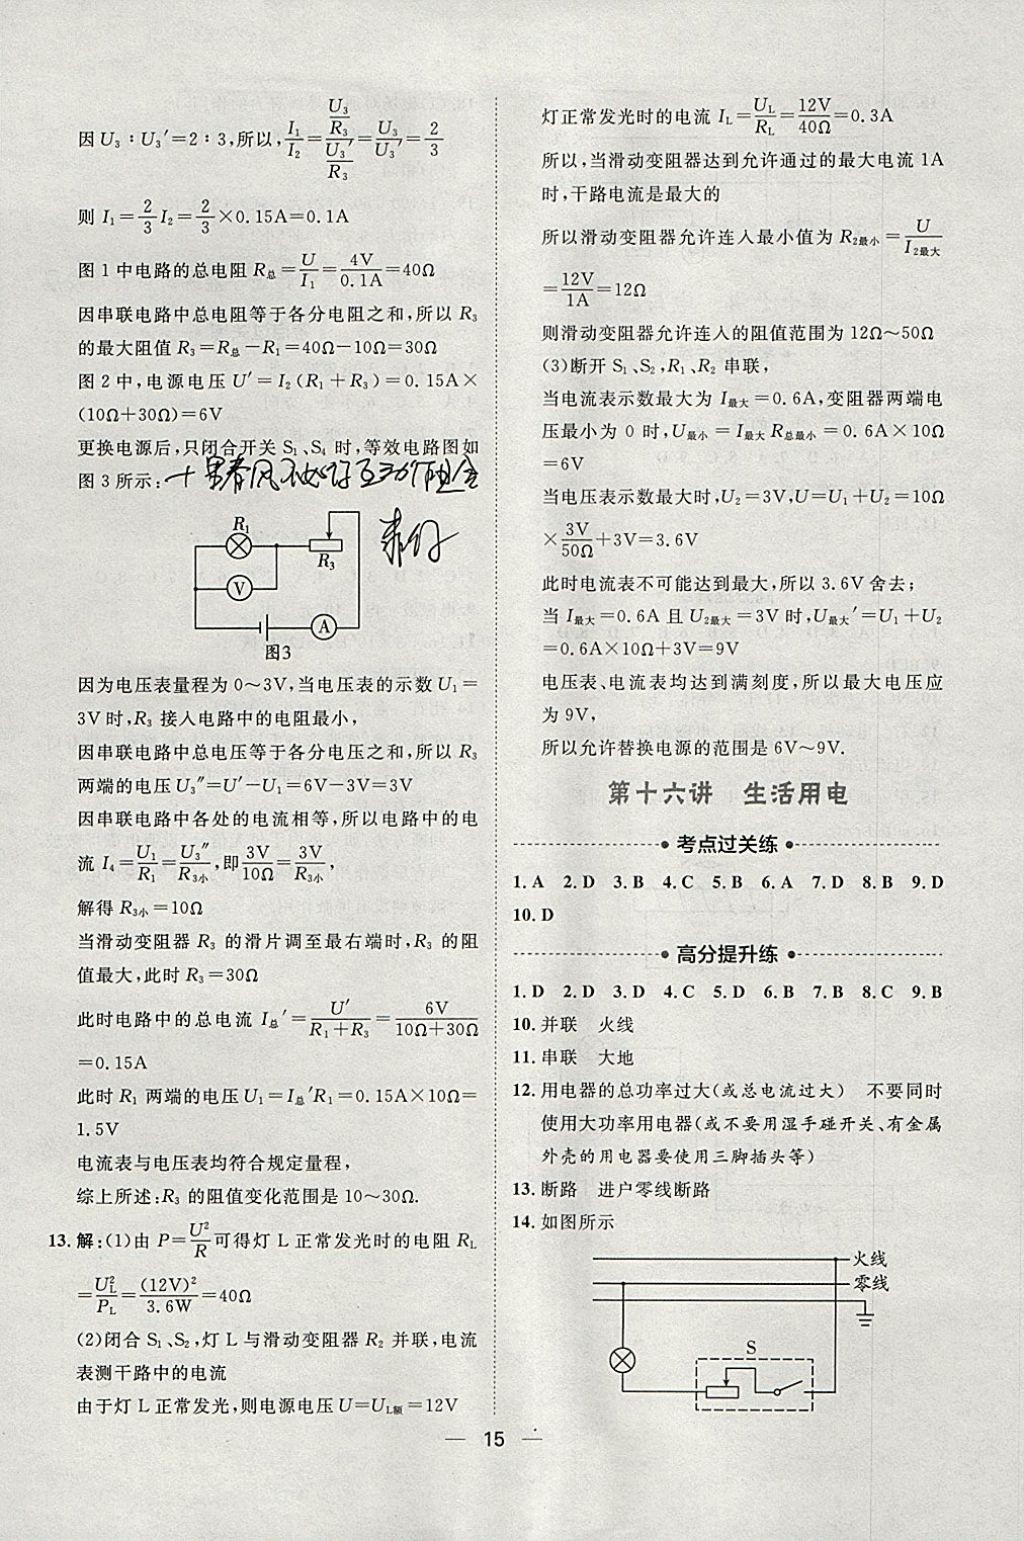 因 U₃∶U₃′=2∶3,所以, I₁/I₂=(U₃/R₃)/(U₃′/R₃)=U₃/U₃′=2/3
则 I₁=2/3 I₂=2/3×0.15A=0.1A
图 1 中电路的总电阻 R总=U/I₁=4V/0.1A=40Ω
因串联电路中总电阻等于各分电阻之和,所以 R₃
的最大阻值 R₃=R总-R₁=40Ω-10Ω=30Ω
图 2 中,电源电压 U′=I₂(R₁+R₃)=0.15A×
(10Ω+30Ω)=6V
更换电源后,只闭合开关 S₁、S₄ 时,等效电路图如
图 3 所示:
R₁
R₃
V
A
图3
因为电压表量程为 0~3V,当电压表的示数 U₁=
3V 时,R₃ 接人电路中的电阻最小,
因串联电路中总电压等于各分电压之和,所以 R₃
两端的电压 U₃″=U′-U₁=6V-3V=3V
因串联电路中各处的电流相等,所以电路中的电
流 I₄=U₁/R₁=U₃″/R₃小,即3V/10Ω=3V/R₃小,
解得 R₃小=10Ω
当滑动变阻器 R₃ 的滑片调至最右端时,R₃ 的阻
值最大,此时 R₃=30Ω
此时电路中的总电流 I总′=U′/(R₁+R₃)=6V/(10Ω+30Ω)
=0.15A
此时 R₁ 两端的电压 U₁=I总′R₁=0.15A×10Ω=
1.5V
电流表与电压表均符合规定量程,
综上所述:R₃ 的阻值变化范围是 10~30Ω.
13.解:(1)由 P=U²/R可得灯 L 正常发光时的电阻 RL
=UL²/PL=(12V)²/3.6W=40Ω
(2)闭合 S₁、S₂,灯 L 与滑动变阻器 R₂ 并联,电流
表测干路中的电流
由于灯 L 正常发光,则电源电压 U=UL额=12V
灯正常发光时的电流 IL=UL/RL=12V/40Ω=0.3A
所以,当滑动变阻器达到允许通过的最大电流 1A
时,干路电流是最大的
所以滑动变阻器允许连人最小值为 R₂最小=U/I₂最大
=12V/1A=12Ω
则滑动变阻器允许连人的阻值范围为 12Ω~50Ω
(3)断开 S₁、S₂,R₁、R₂ 串联,
当电流表示数最大为 I最大=0.6A,变阻器两端电
压最小为 0 时,U最小=I最大R总最小=0.6A×10Ω
=6V
当电压表示数最大时,U₂=3V,U=U₁+U₂=10Ω
×3V/50Ω+3V=3.6V
此时电流表不可能达到最大,所以 3.6V 舍去;
当 I最大=0.6A 且 U₂最大=3V 时,U最大′=U₁+U₂
=0.6A×10Ω+3V=9V
电压表、电流表均达到满刻度,所以最大电压应
为 9V,
所以允许替换电源的范围是 6V~9V.
第十六讲 生活用电
考点过关练
1.A 2.D 3.B 4.C 5.B 6.A 7.D 8.B 9.D
10.D
高分提升练
1.D 2.D 3.D 4.C 5.D 6.B 7.B 8.C 9.B
10.并联 火线
11.串联 大地
12.用电器的总功率过大(或总电流过大) 不要同时
使用大功率用电器(或不要用湿手碰开关、有金属
外壳的用电器要使用三脚插头等)
13.断路 进户零线断路
14.如图所示
火线
零线
S
— 15 —